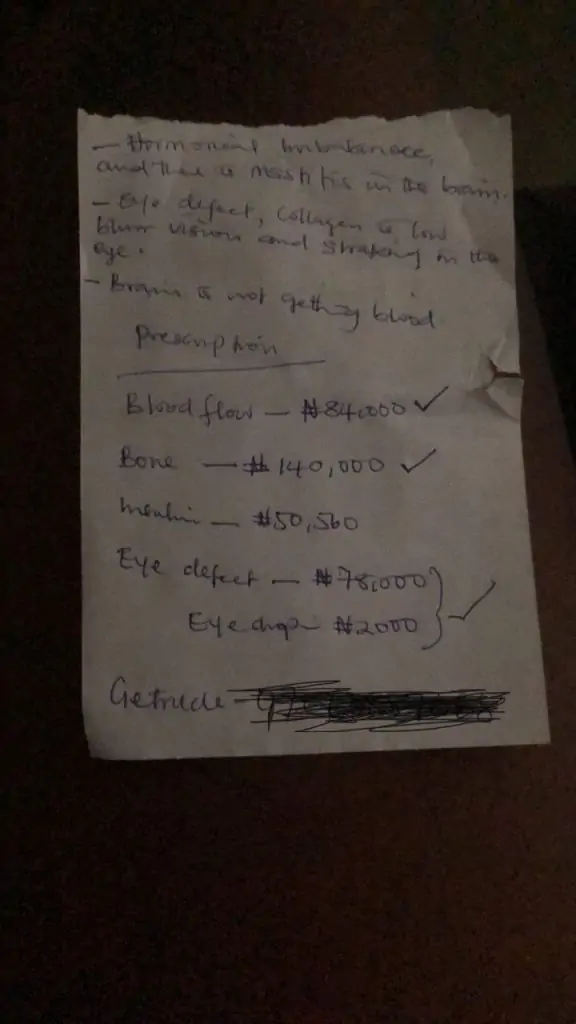 - Hormonal Imbalance,
and there is Mastitis in the brain.
- Eye defect, Collagen is low
blur vision and straking in the
eye.
- Brain is not getting blood
Prescription
Blood flow - ₦84,000 ✓
Bone - ₦140,000 ✓
- ₦50,560
Eye defect - ₦78,000
Eye drop - ₦2000 ✓
Getrude -